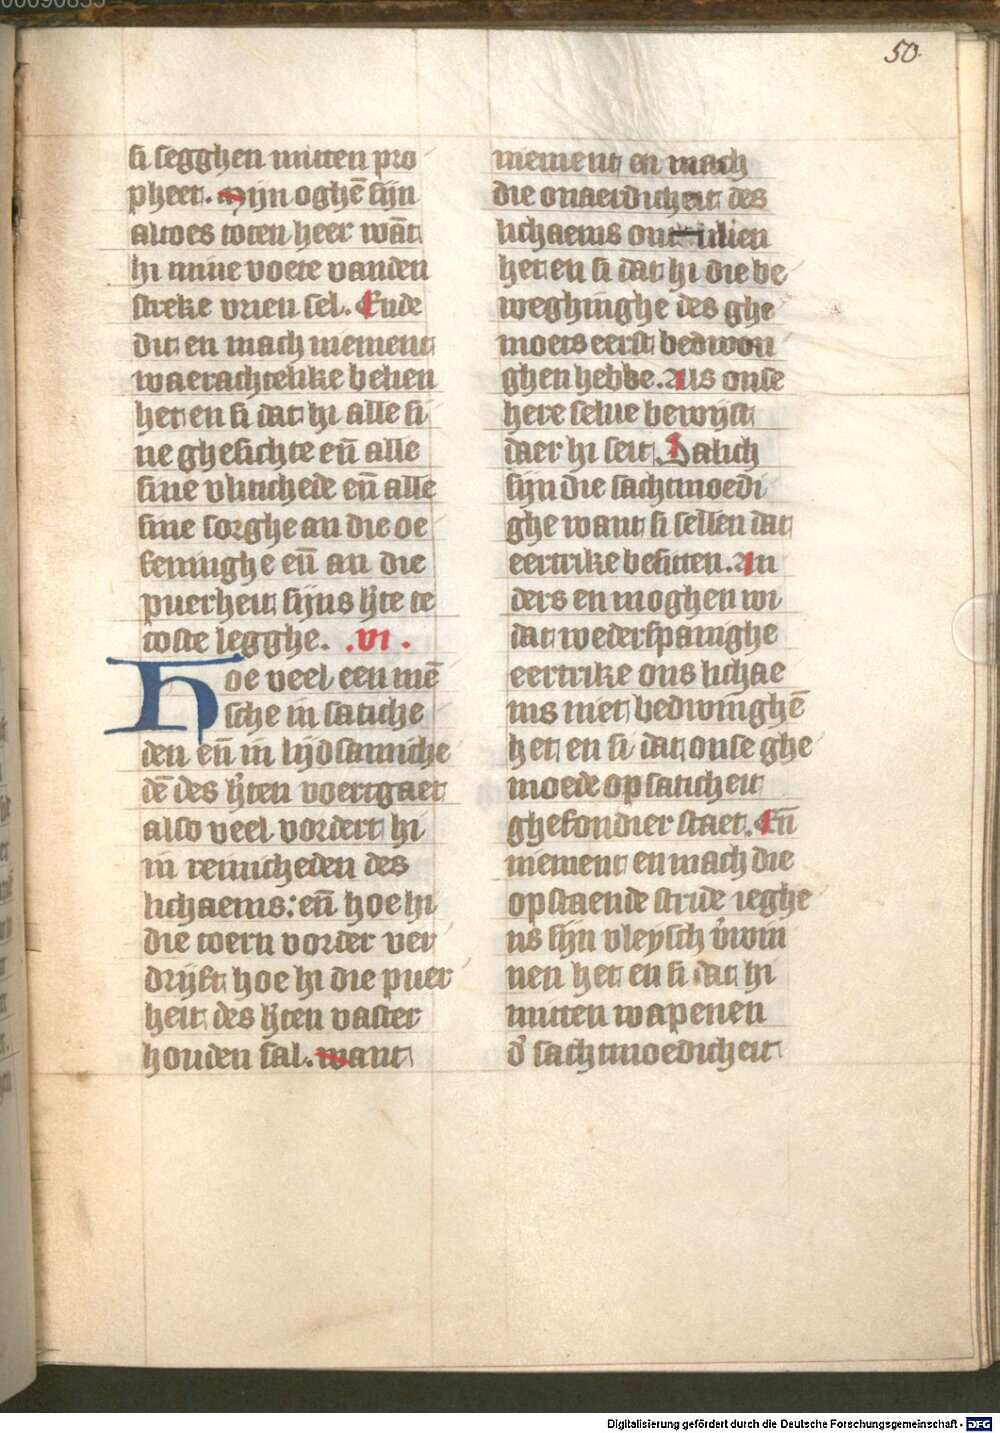 00090855
50.
si segghen mitten pro
pheet. Mijn oghē sijn
altoes toten heer wāt
hi mine voete vanden
stricke vrien sel. Ende
dit en mach niement
waerachtelike belien
het en si dat hi alle si
ne ghesichte eñ alle
sine vlitichede eñ alle
sine sorghe an die oe
feninghe eñ an die
puerheit sijns hʼte te
toste legghe. .VI.
Hoe veel een mē
sche in satiche
den eñ in lijdsamiche
dē des hʼten voertgaet
also veel vordert hi
in reinicheden des
lichaems: eñ hoe hi
die toern vorder ver
drijft hoe hi die puer
heit des hʼten vaster
houden sal. want
niement en mach
die onaerdicheit des
lichaems ontulien
het en si dat hi die be
weghinghe des ghe
moets eerst bedwon
ghen hebbe. Als onse
here selue bewijst
daer hi seit Salich
sijn die sachtmoedi
ghe want si sellen dat
eertrike besitten. An
ders en moghen wi
dat wederspanighe
eertrike ons lichae
ms niet bedwinghē
het en si dat onse ghe
moede op saticheit
ghefondiert staet. Eñ
niement en mach die
opstaende stride ieghe
ns sijn vleysch vʼwin
nen het en si dat hi
mitten wapenen
dʼ sachtmoedicheit
Digitalisierung gefördert durch die Deutsche Forschungsgemeinschaft - DFG